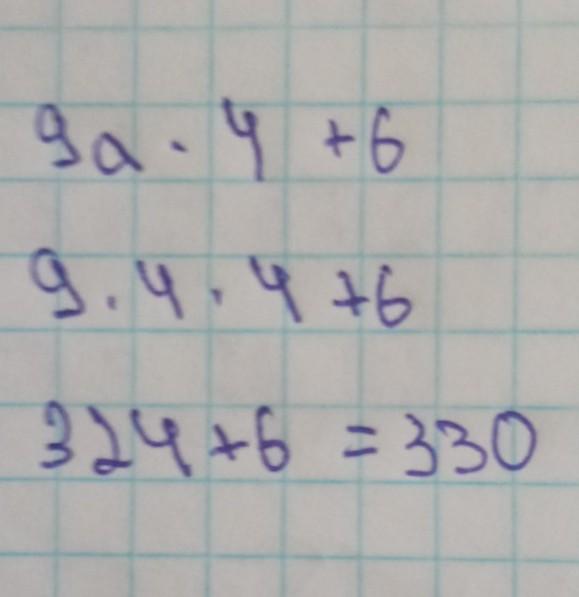 9a · 4 + 6
9 · 4 · 4 + 6
324 + 6 = 330